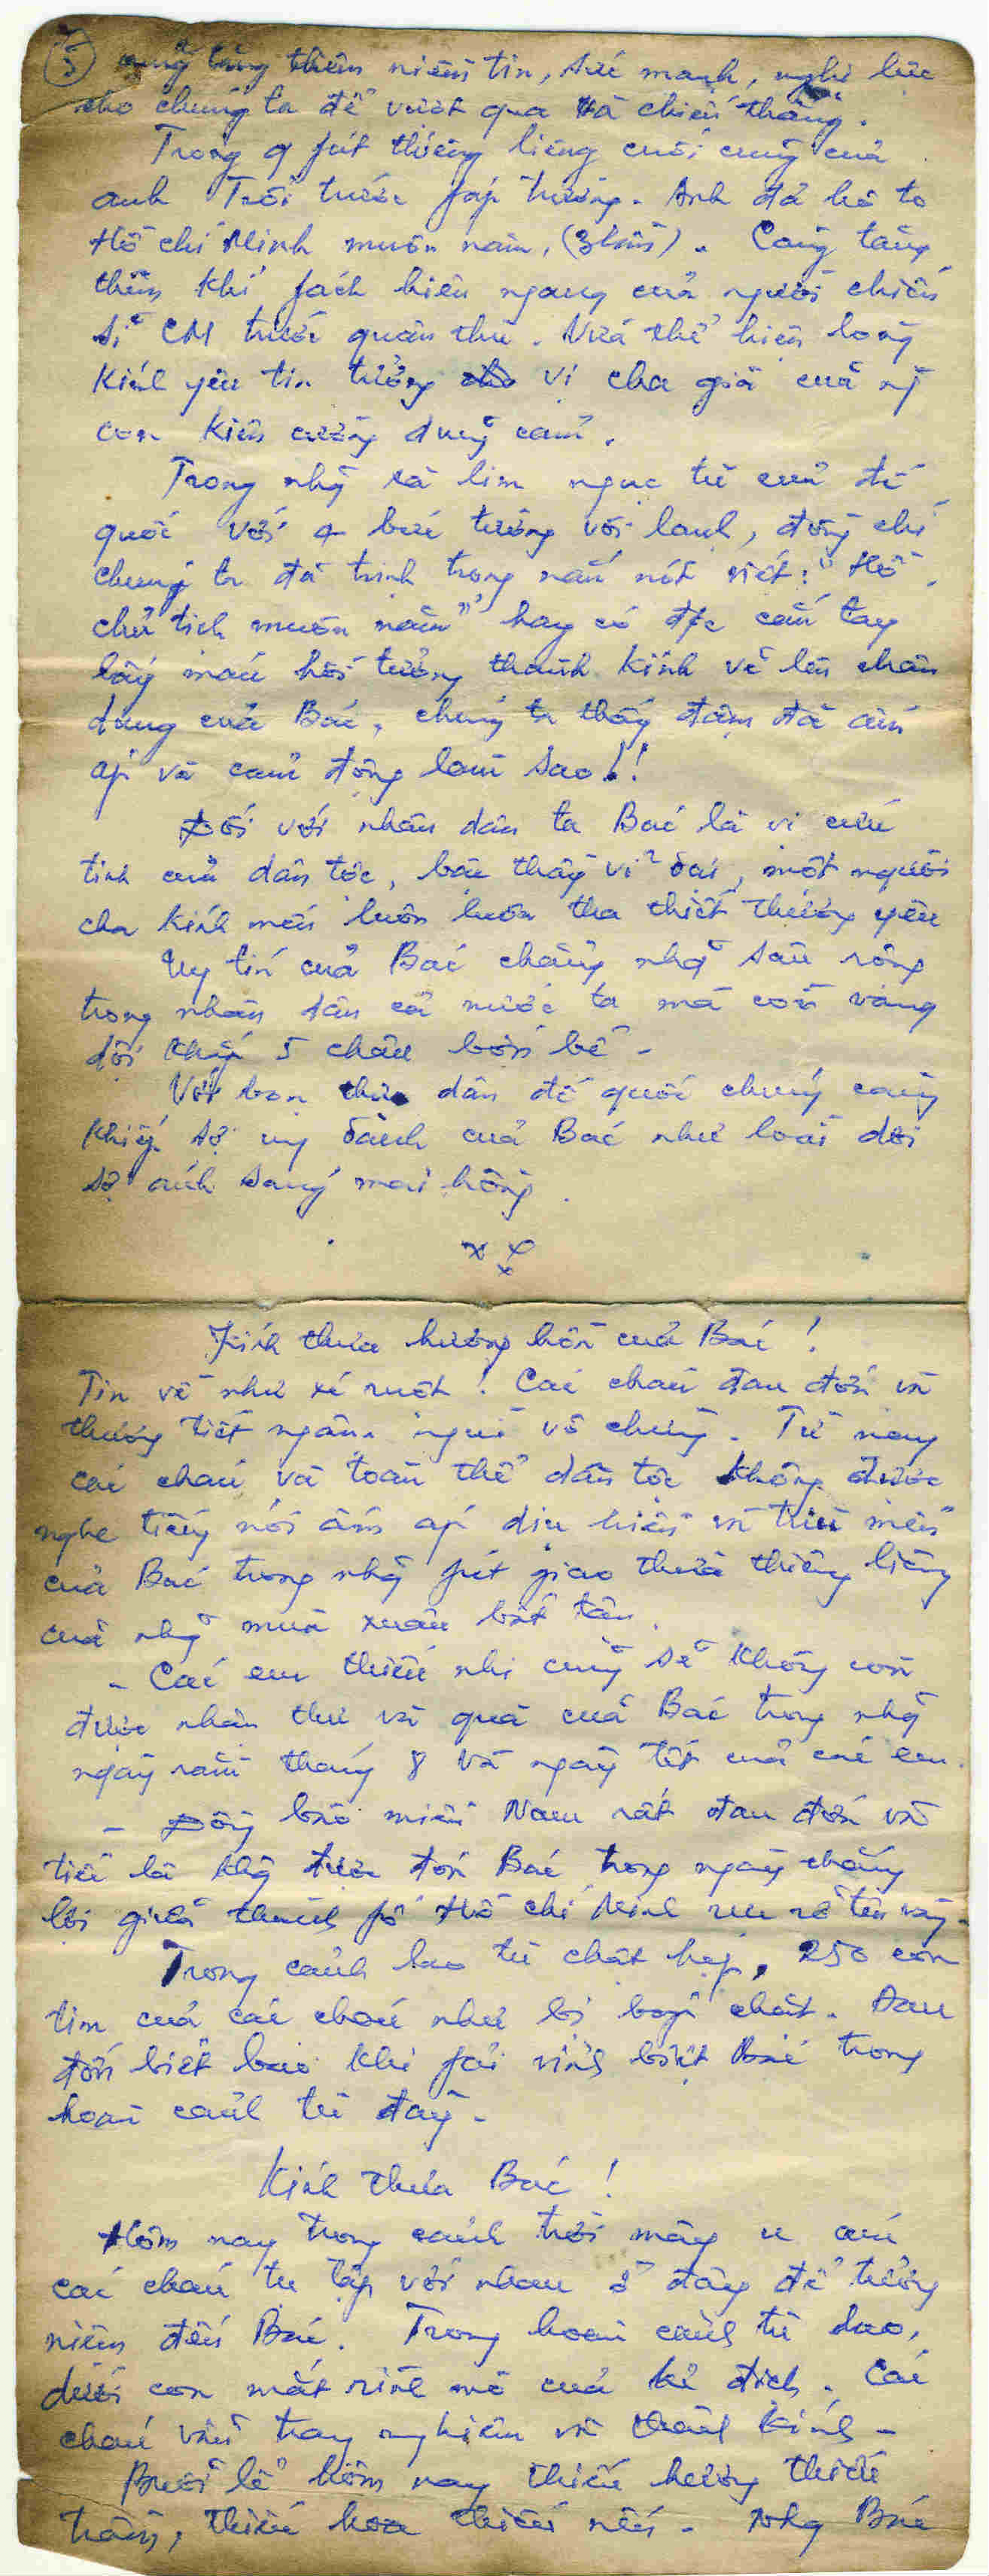 cũng tăng thêm niềm tin, sức mạnh, nghị lực
cho chúng ta để vượt qua và chiến thắng.
Trong 9 fút thiêng liêng cuối cùng của
anh Trỗi trước fáp trường. Anh đã hô to
Hồ Chí Minh muôn năm, (3 lần). Càng tăng
thêm khí fách hiên ngang của người chiến
sĩ CM trước quân thù. Vừa thể hiện lòng
kính yêu tin tưởng vị cha già của ~
con kiên cường dũng cảm.
Trong nhg~ xà lim ngục tù của đế
quốc với 4 bức tường vôi lạnh, đồng chí
chúng ta đã trịnh trọng nắn nót viết: "Hồ
chủ tịch muôn năm" hay có đ/c cắn tay
lấy máu hồi tưởng thành kính vẽ lên chân
dung của Bác, chúng ta thấy đậm đà ấm
áp và cảm động làm sao!!
Đối với nhân dân ta Bác là vị cứu
tinh của dân tộc, bậc thầy vĩ đại, một người
cha kính mến luôn luôn tha thiết thương yêu
Uy tín của Bác chẳng nhg~ sâu rộng
trong nhân dân cả nước ta mà còn vang
dội khắp 5 châu bốn bể -
Với bọn thực dân đế quốc chúng càng
khiếp sợ uy danh của Bác như loài dơi
sợ ánh sáng mai hồng.
x x x
Kính thưa hương hồn của Bác!
Tin về như xé ruột! Các cháu đau đớn và
thương tiết ngậm ngùi vô chừng. Từ nay
các cháu và toàn thể dân tộc không được
nghe tiếng nói ấm áp dịu hiền và trìu mến
của Bác trong nhg~ fút giao thừa thiêng liêng
của nhg~ mùa xuân bất tận.
- Các em thiếu nhi cũng sẽ không còn
được nhận thư và quà của Bác trong nhg~
ngày rằm tháng 8 và ngày tết của các em.
- Đồng bào miền Nam rất đau đớn và
tiếc là khg được đón Bác trong ngày thắng
lợi giữa thành fố Hồ Chí Minh rực rỡ tên vàng.
Trong cảnh lao tù chật hẹp, 250 con
tim của các cháu như bị bóp chặt. Đau
đớn biết bao khi fải vĩnh biệt Bác trong
hoàn cảnh tù đày -
Kính thưa Bác!
Hôm nay trong cảnh trời mây u ám
các cháu tụ tập với nhau ở đây để tưởng
niệm đến Bác. Trong hoàn cảnh tù lao,
dưới con mắt rình mò của kẻ địch. Các
cháu vẫn trang nghiêm và thành kính -
Buổi lễ hôm nay thiếu hương thiếu
trầm, thiếu hoa thiếu nến - Nhg Bác